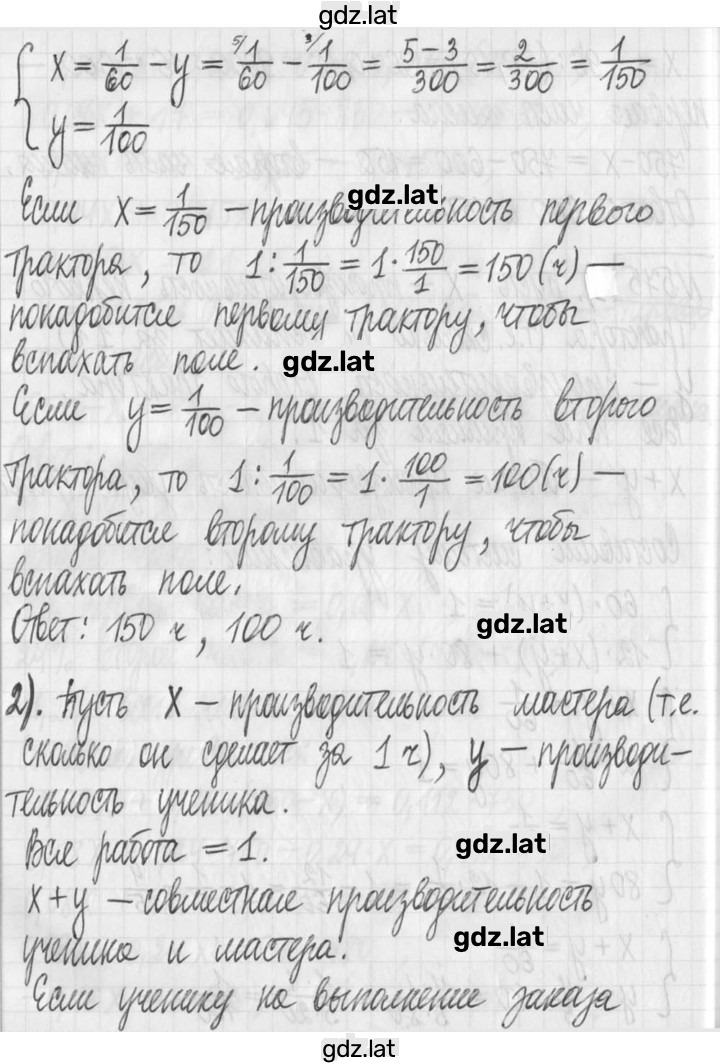 gdz.lat
{ x = 1/60 − y = ⁵⁾1/60 − ³⁾1/100 = (5−3)/300 = 2/300 = 1/150
{ y = 1/100
Если x = 1/150 – производительность первого
gdz.lat
трактора, то 1 : 1/150 = 1 · 150/1 = 150 (ч) —
понадобится первому трактору, чтобы
вспахать поле.
gdz.lat
Если y = 1/100 – производительность второго
трактора, то 1 : 1/100 = 1 · 100/1 = 100 (ч) —
понадобится второму трактору, чтобы
вспахать поле.
Ответ: 150 ч, 100 ч.
gdz.lat
2). Пусть x – производительность мастера (т.е.
сколько он сделает за 1 ч), y – производи-
тельность ученика.
Вся работа = 1.
gdz.lat
x + y – совместная производительность
ученика и мастера.
gdz.lat
Если ученику на выполнение заказа
gdz.lat